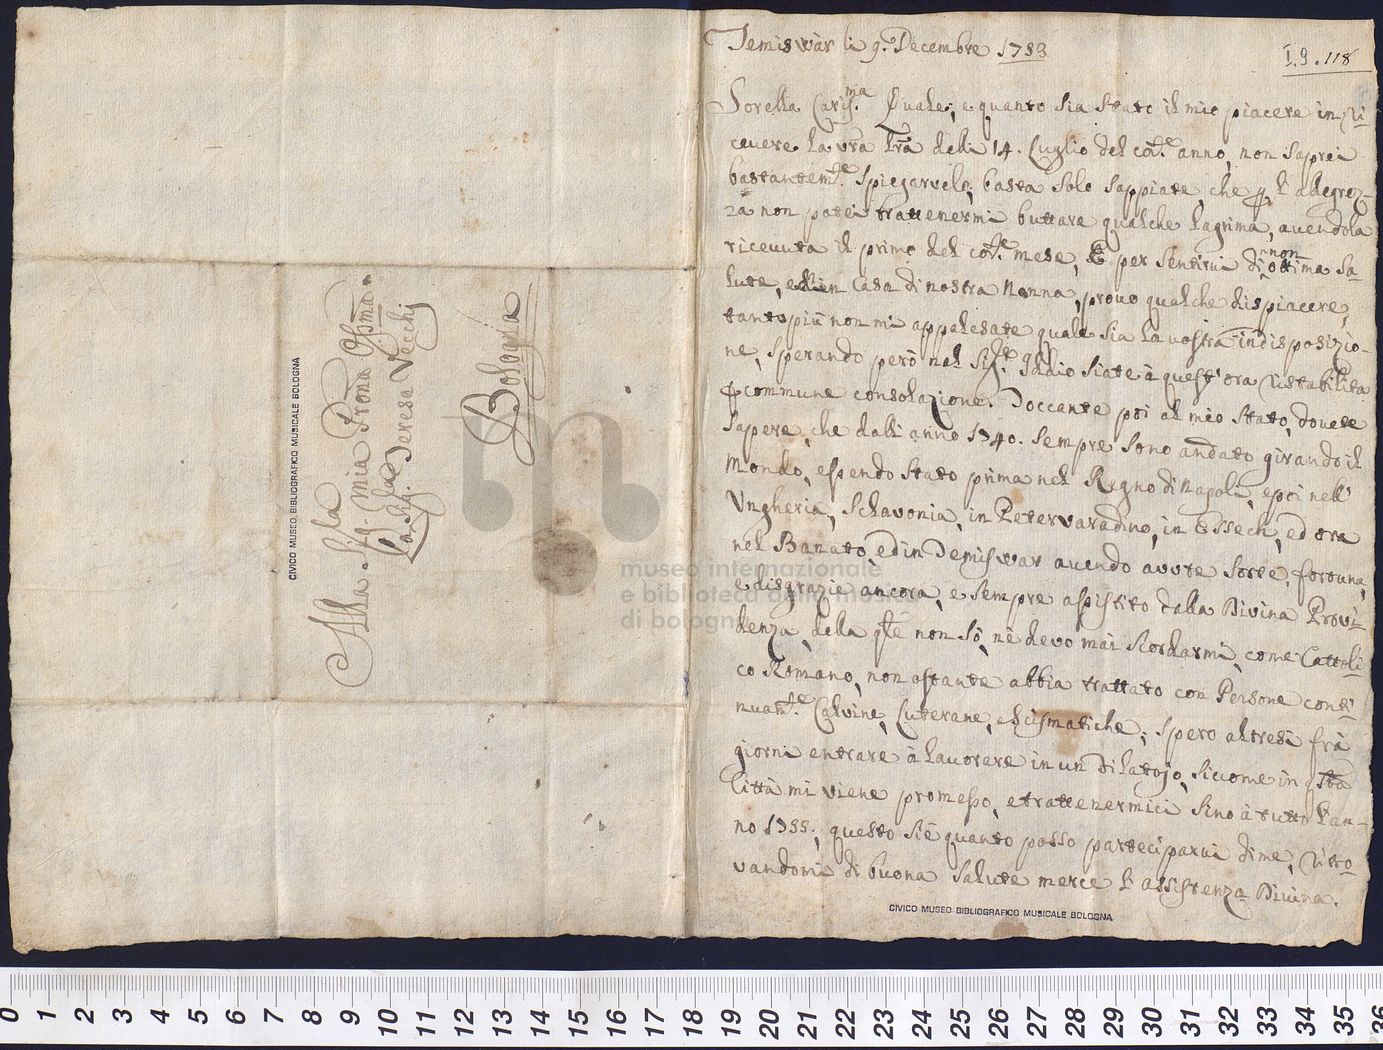 Temiswàr li 9. Decembre 1753
I.9.118
Sorella Cariss.ma Quale, e quanto sia stato il mio piacere in ri-
cevere la vra Lra delli 14. Luglio del cor.te anno, non saprei
bastantem.te spiegarvelo, basta solo sappiate, che p. l'allegrez-
za non potei trattenermi buttare qualche lagrima, avendola
ricevuta il primo del cor.te mese, E per sentirvi di non ottima sa-
lute, ed in casa di nostra Nonna, provo qualche dispiacere,
tanto più non mi appalesate quale sia la vostra indisposizio-
ne, sperando però nel Sig.re Iddio siate à quest'ora ristabilita
p commune consolazione. Toccante poi al mio stato, dovete
sapere, che dall'anno 1740. sempre sono andato girando il
Mondo, essendo stato prima nel Regno di Napoli, e poi nell'
Ungheria, Schavonia, in Petervaradino, in Essech, ed ora
nel Banato, ed in Temiswar avendo avute sorte, fortuna,
e disgrazie ancora, e sempre assistito dalla Divina Provi-
denza, della qle non sò, nè devo mai scordarmi, come Cattoli-
co Romano, non ostante abbia trattato con Persone conti-
nuam.te Calvine, Luterane, e Scismatiche; spero altresi frà
giorni entrare à lavorare in un Filatojo, siccome in qsta
Città mi viene promesso, e trattenermici sino à tutto l'an-
no 1755.; questo si è quanto posso parteciparvi di me, ritro-
vandomi di buona salute mercè l'assistenza Divina.
CIVICO MUSEO BIBLIOGRAFICO MUSICALE BOLOGNA
Alla Sig.la
Sig. Mia Prona Ossma
la Sig.la Teresa Vecchj
Bologna
CIVICO MUSEO BIBLIOGRAFICO MUSICALE BOLOGNA
museo internazionale
e biblioteca della musica
di bologna
0 1 2 3 4 5 6 7 8 9 10 11 12 13 14 15 16 17 18 19 20 21 22 23 24 25 26 27 28 29 30 31 32 33 34 35 36